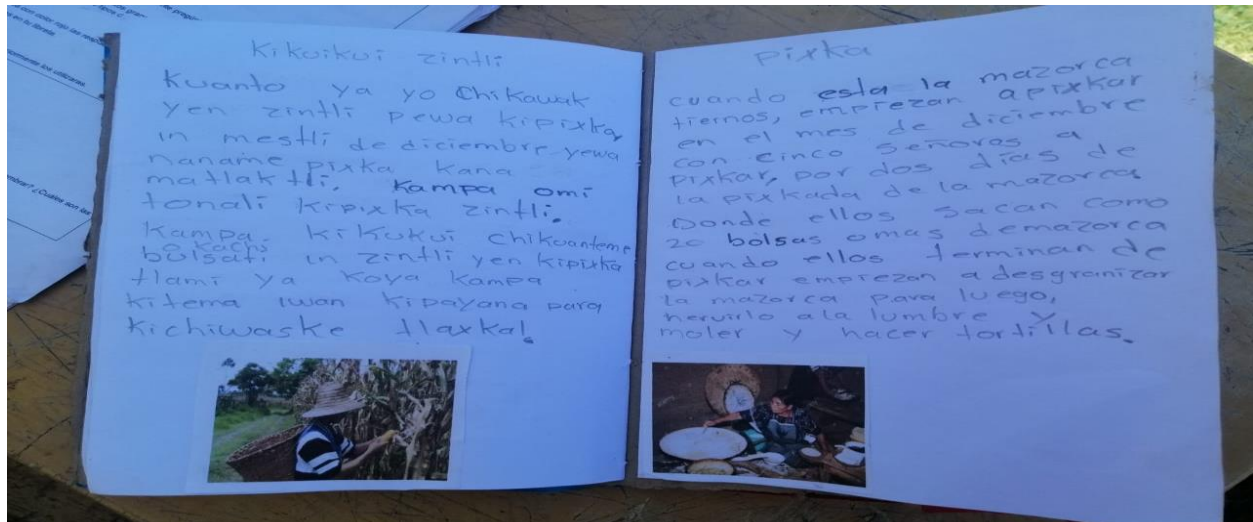 Kikuikui zintli
Kuanto ya yo Chikawak
yen zintli pewa kipixka,
in mestli de diciembre yewa
naname pixka kana
matlaktli. Kampa omi
tonali Kipixka zintli.
Kampa kikukui chikuanteme
o kachi
bolsati in zintli yen kipixka
tlami ya Koya Kampa
kitema iwan kipayana para
kichiwaske tlaxkal.
pixka
cuando esta la mazorca
tiernos, empiezan apixkar
en el mes de diciembre
con cinco señoras a
pixkar, por dos días de
la pixkada de la mazorca.
Donde ellos sacan como
20 bolsas omas demazorca
cuando ellos terminan de
pixkar empiezan a desgranizar
la mazorca para luego,
hervirlo ala lumbre y
moler y hacer tortillas.